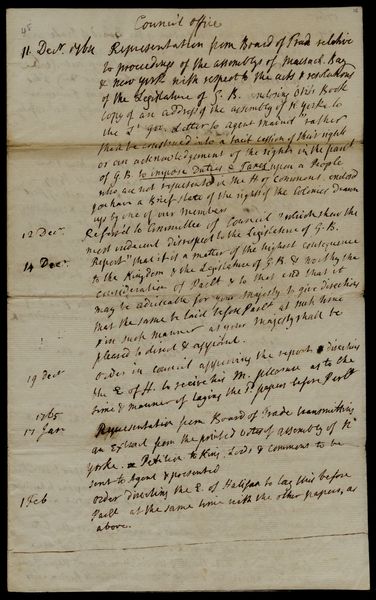 Council office
11 Decr. 1764 Representation from Board of Trade relative
to proceedings of the assemblys of Massach. Bay
& New York with respect to the acts & resolutions
of the Legislature of G. B. enclosing Otis's Book
copy of an address of the assembly of N. Yorke to
the Lt. Gov. Letter to agent "rather
than be construed into a tacit cession of their rights
or an acknowledgement of the rights in the part
of G B. to impose Duties & Taxes upon a People
who are not represented in the H of Commons. enclosed
you have a Brief State of the rights of the Colonies drawn
up by one of our Members
12 Decr. Referr'd to Committee of Council which shew the
most indecent disrespect to the Legislature of G. B.
14 Decr. Report "that it is a matter of the highest consequence
to the Kingdom & the Legislature of G B & worthy the
consideration of Parlt & to that end that it
may be adviseable for your Majesty to give directions
that the same be laid before Parlt at such time
& in such manner as your Majesty shall be
pleased to direct & appoint.
19 Decr Order in Council approving the report directing
the E. of H. to receive his M. pleasure as to the
time & manner of laying the sd. papers before Parlt
1765
17 Jan Representation from Board of Trade transmitting
an Extract from the printed votes of assembly of N
Yorke. Petition to King, Lords & Commons to be
sent to Agent & presented
1 Feb Order directing the E. of Halifax to lay this before
Parlt at the same time with the other papers, as
above.